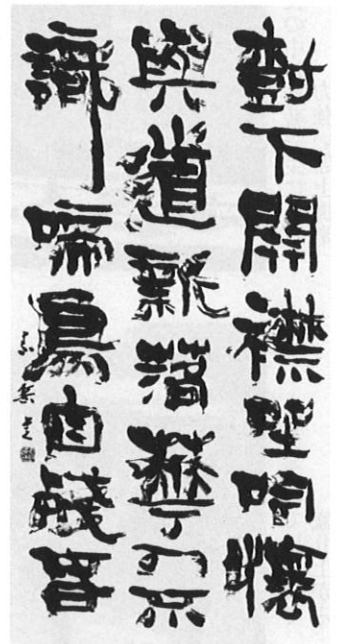 樹下開襟坐吟懷
與道落華人不
識啼鳥自殘春